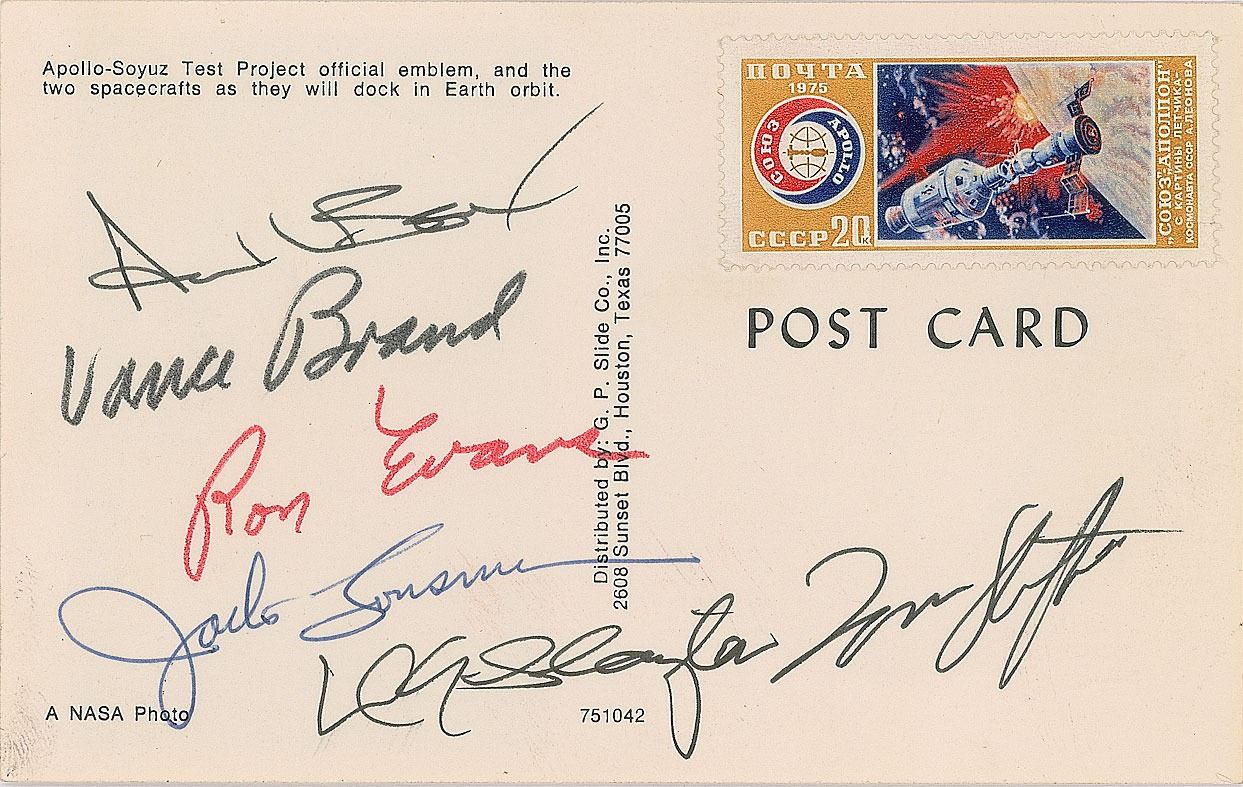 Apollo-Soyuz Test Project official emblem, and the
two spacecrafts as they will dock in Earth orbit.
ПОЧТА
1975
СОЮЗ
APOLLO
СССР 20 К
„СОЮЗ-АПОЛЛОН"
С КАРТИНЫ ЛЕТЧИКА-
КОСМОНАВТА СССР А.ЛЕОНОВА
POST CARD
Distributed by: G. P. Slide Co., Inc.
2608 Sunset Blvd., Houston, Texas 77005
Vance Brand
Ron Evans
Jack Lousma
DK Slayton
Tom Stafford
A NASA Photo
751042